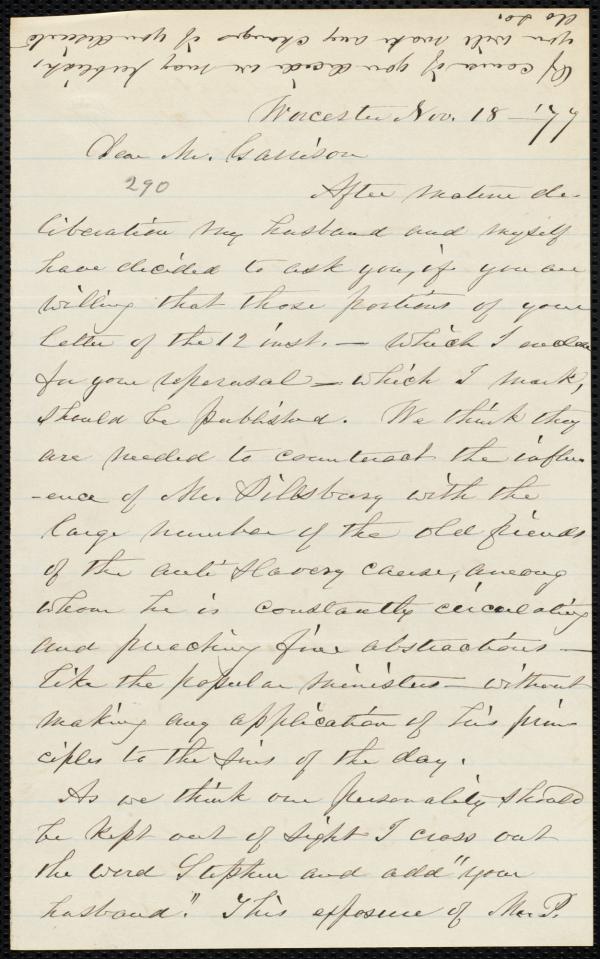 Of course if you decide we may publish,
you will make any changes if you decide
to do so.
Worcester Nov. 18 - '77
Dear Mr. Garrison
290
After mature de-
liberation my husband and myself
have decided to ask you, if you are
willing that those portions of your
letter of the 12 inst. — which I enclose
for your reperusal — which I mark,
should be published. We think they
are needed to counteract the influ-
-ence of Mr. Pillsbury with the
large number of the old friends
of the anti Slavery cause, among
whom he is constantly circulating
and preaching fine abstractions —
like the popular ministers — without
making any application of his prin-
ciples to the sins of the day.
As we think our personality should
be kept out of sight I cross out
the word Stephen and add "your
husband". This exposure of Mr. P.